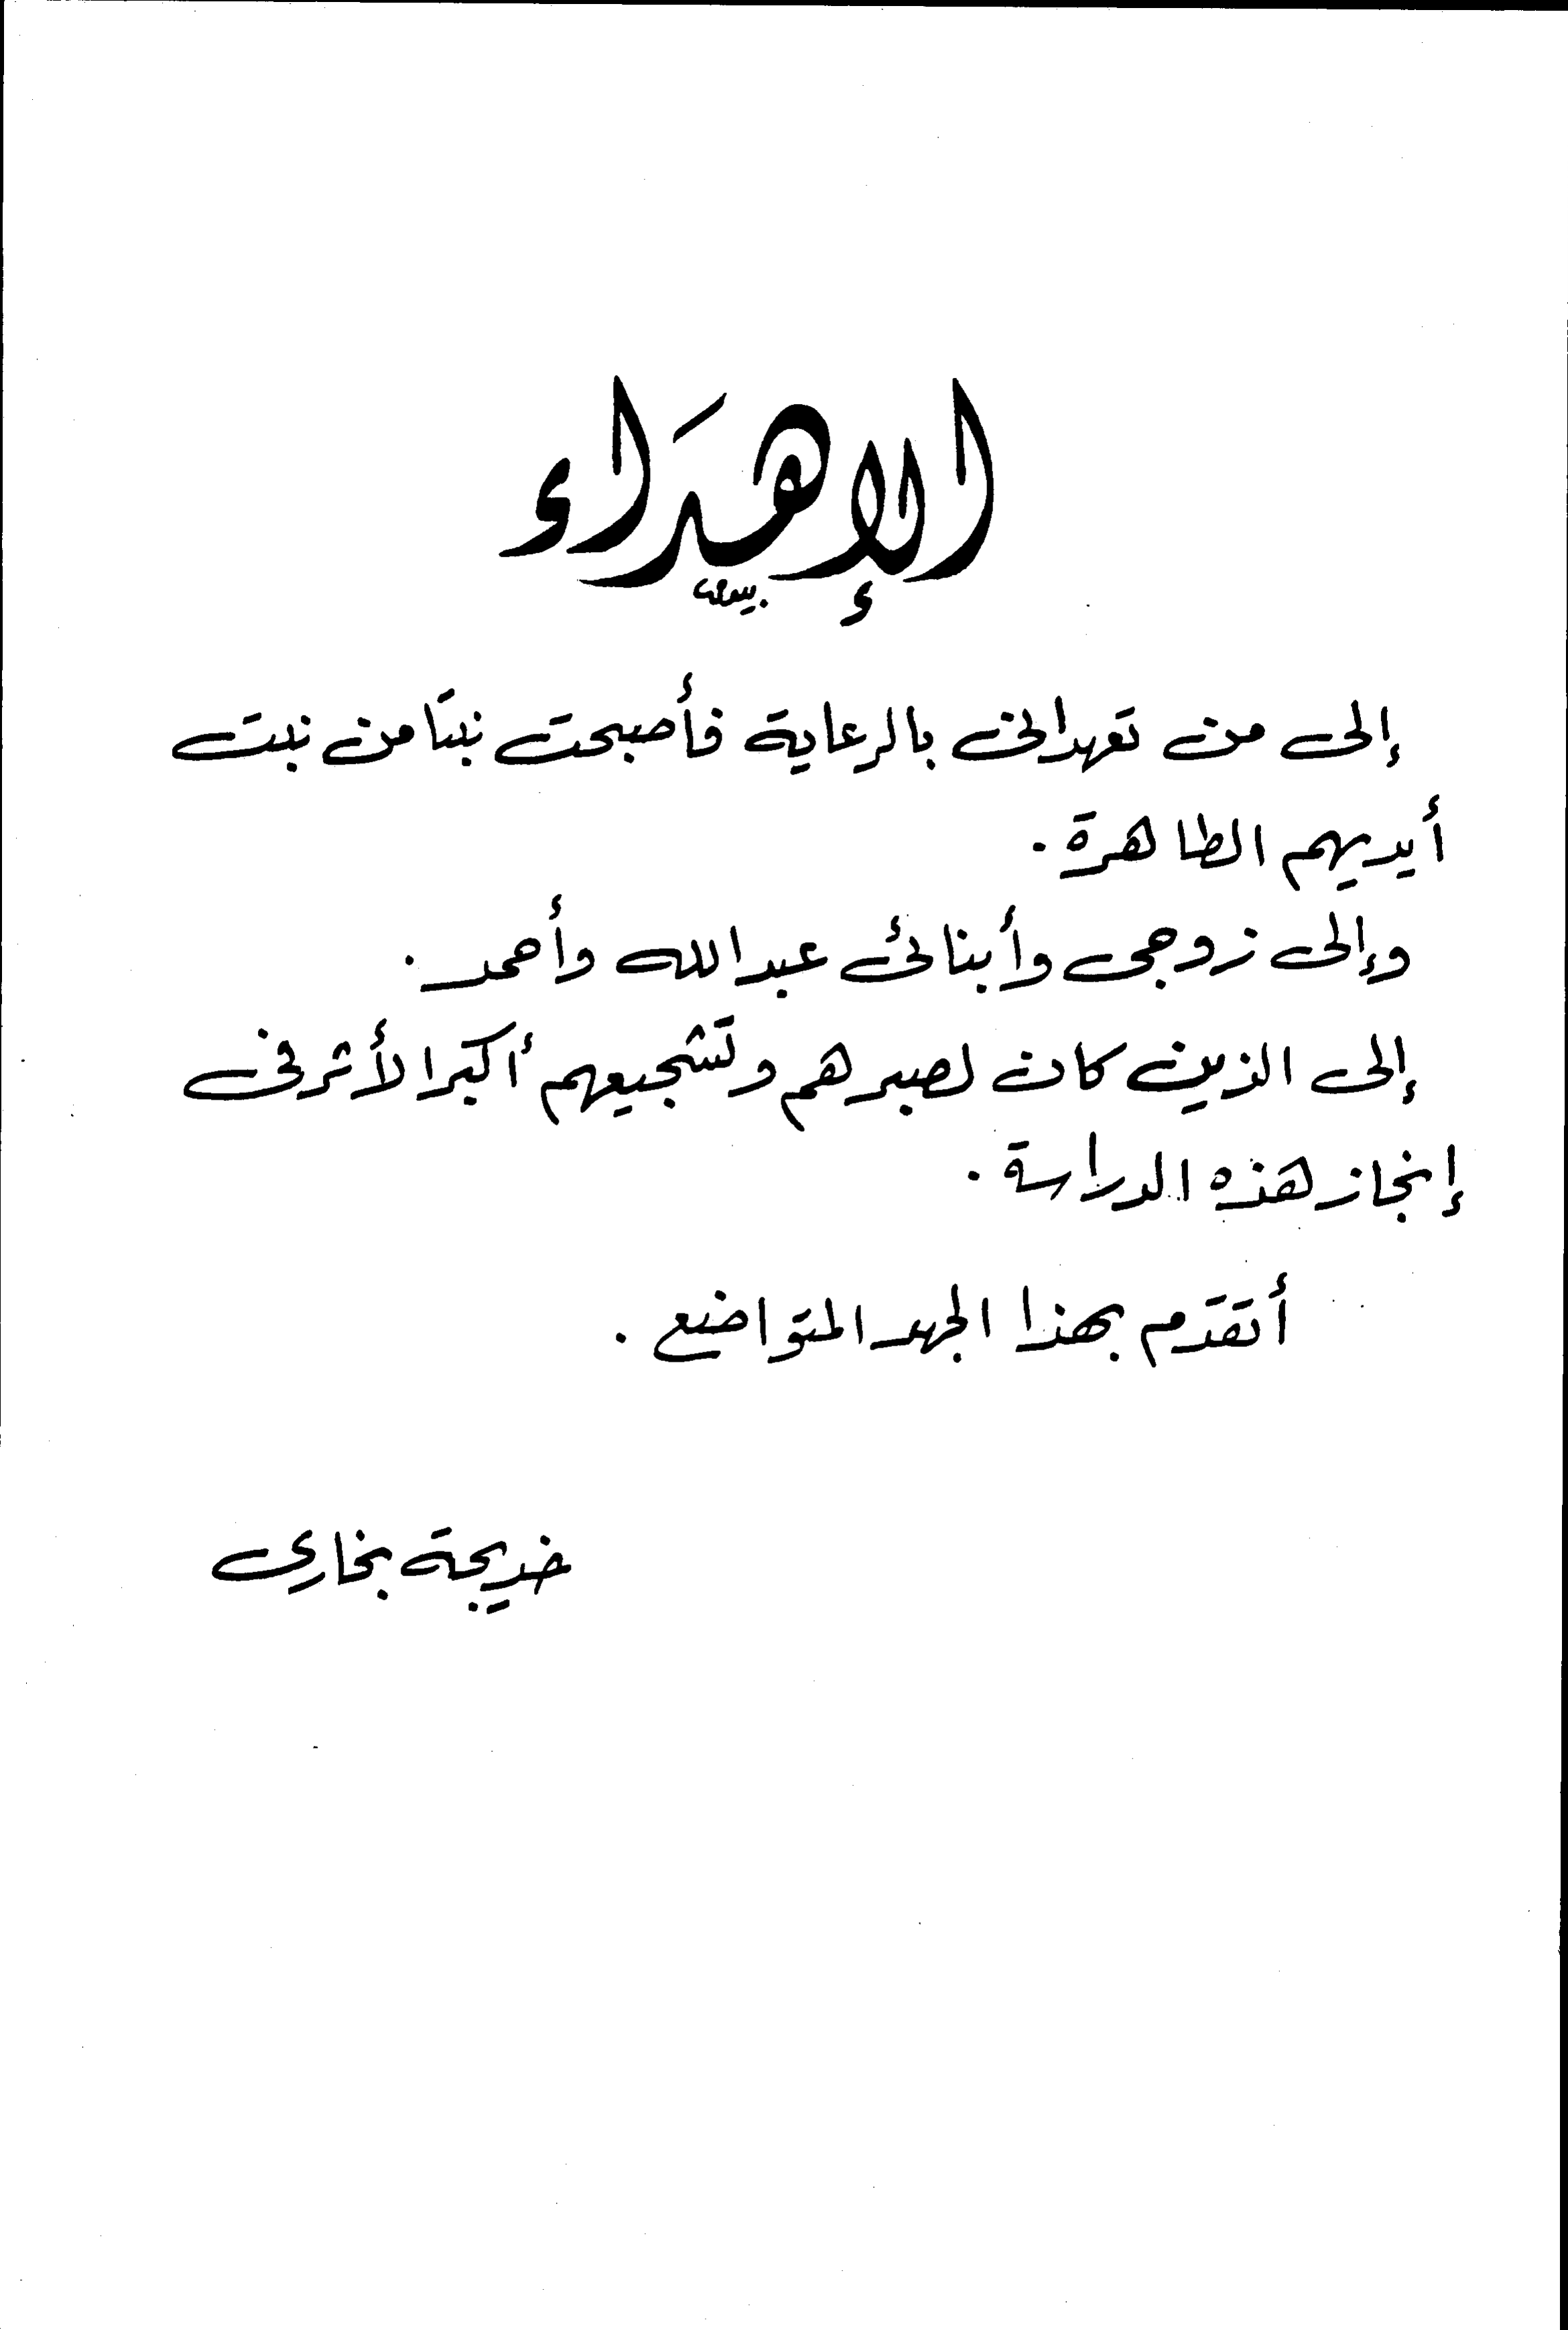 الإهدَاء
إلى من تعهدانى بالرعاية فأصبحت نبتًا من نبت
أيديهم الطاهرة .
وإلى زوجى وأبنائى عبدالله وأحمد .
إلى الذين كان لصبرهم وتشجيعهم أكبر الأثر فى
إنجاز هذه الدراسة .
أتقدّم بهذا الجهد المتواضع .
خديجة بخارى